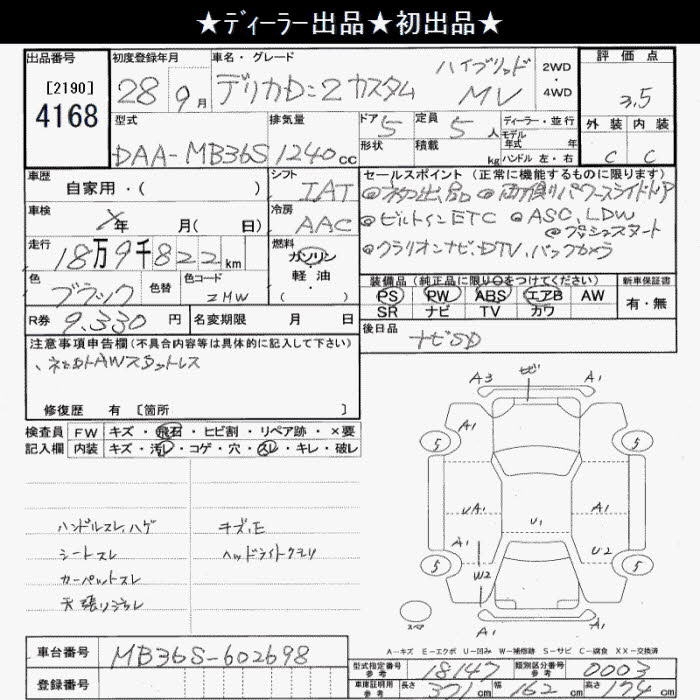 ★ディーラー出品★初出品★
出品番号
[2190]
4168
初度登録年月
28年 9月
車名・グレード
デリカD:2 カスタム ハイブリッド MV
2WD
・
4WD
評価点
3.5
外装 内装
C C
型式
DAA-MB36S
排気量
1240cc
ドア 5
形状
定員 5人
積載 kg
ディーラー・並行
モデル年式 年
ハンドル 左・右
車歴
自家用・( )
シフト
IAT
車検
年 月( 日)
冷房
AAC
走行
18万9千822km
燃料
ガソリン
軽・油
・( )
色
ブラック
色替
色コード
ZMW
R券 9,330円
名変期限 月 日
セールスポイント (正常に機能するものに限ります)
◎ネタ出し品 ◎両側パワースライドドア
◎ビルトインETC ◎ASC,LDW
◎プッシュスタート
◎クラリオンナビ、DTV、バックカメラ
装備品 (純正品に限り○をつけてください)
PS PW ABS エアB AW
SR ナビ TV カワ
新車保証書
有・無
後日品
ナビSD
注意事項申告欄(不具合内容等は具体的に記入して下さい)
AWスタットレス
修復歴 有 [箇所 ]
検査員 FW キズ・飛石・ヒビ割・リペア跡・×要
記入欄 内装 キズ・汚レ・コゲ・穴・スレ・キレ・破レ
ハンドルスレ,ハゲ
シートスレ
カーペットスレ
天張リヨゴレ
キズ,E
ヘッドライトクモリ
A3 ヒビ A1
A1
5 5
UA1 U1 A1
A1 U2
W2
5 5
A1
スペア
A-キズ E-エクボ U-凹み W-補修跡 S-サビ C-腐食 XX-交換済
車台番号 MB36S-602698
登録番号
型式指定番号 参考 18147
類別区分番号 参考 0003
車庫証明用 参考 長さ 371cm 幅 162cm 高さ 174cm